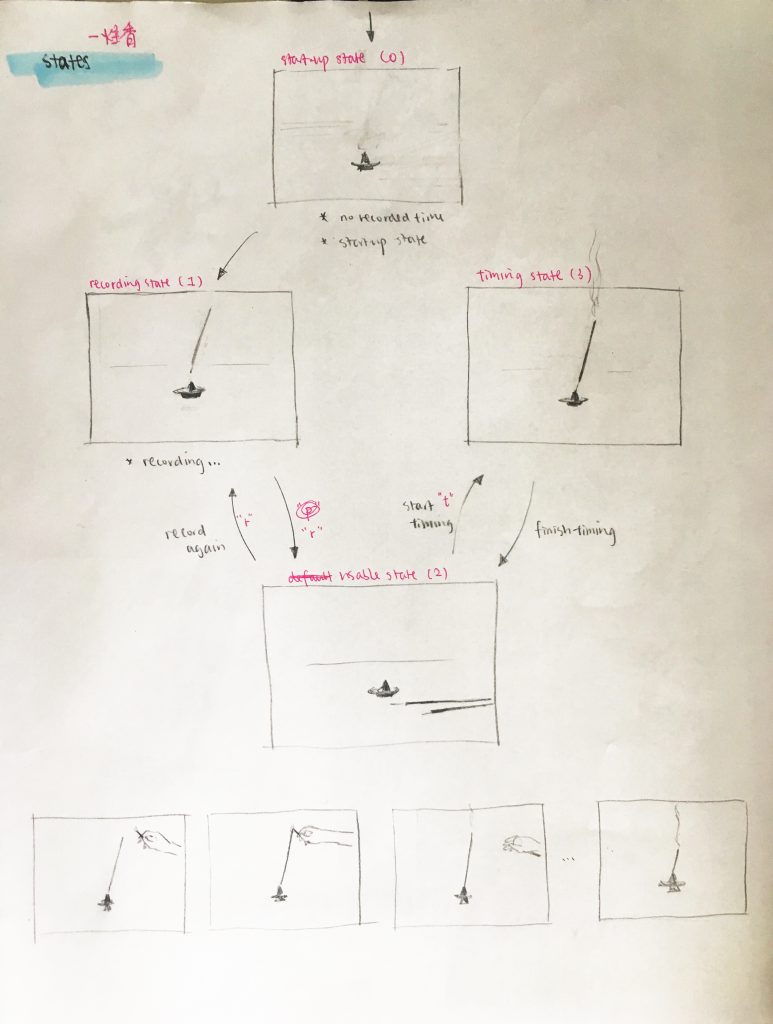 一炷香
states
start-up state (0)
* no recorded time
* start-up state
recording state (1)
timing state (3)
* recording...
record again
"r"
"p"
"r"
start "t"
timing
finish-timing
default usable state (2)
...